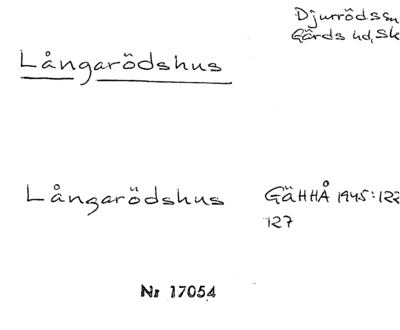 Djurröds sn
Gärds hd, Sk
Långarödshus
Långarödshus GäHHÅ 1945:122
127
Nr 17054